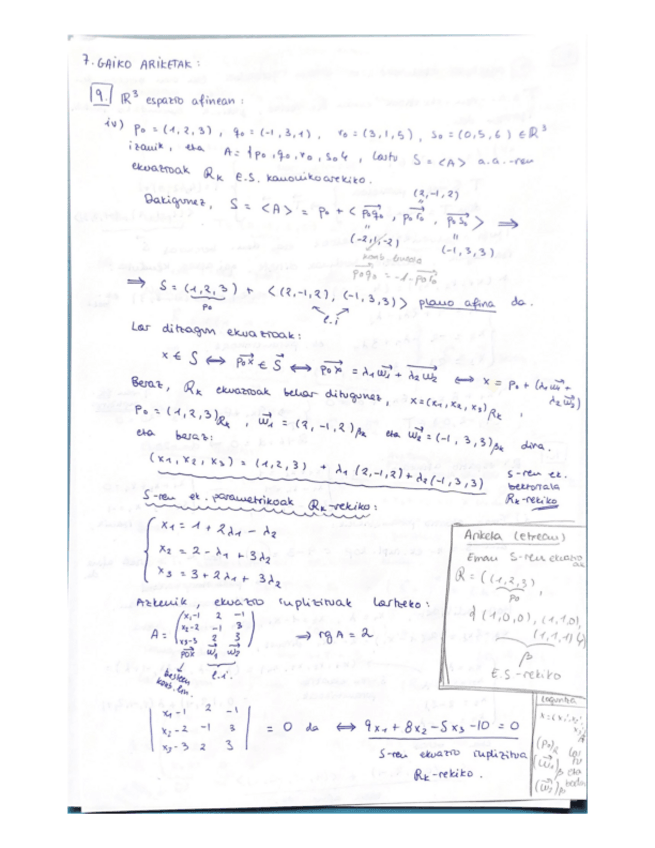 7. GAIKO ARIKETAK:
9. R³ espazio afinean:
iv) p₀ = (1,2,3), q₀ = (-1,3,1), r₀ = (3,1,5), s₀ = (0,5,6) ∈ R³
izanik, eta A = {p₀, q₀, r₀, s₀}, lortu S = <A> a.a.-ren
ekuazioak R_K E.S. kanonikoarekiko.
(2,-1,2)
Dakigunez, S = <A> = p₀ + < p₀q₀, p₀r₀, p₀s₀ > ⟹
(-2,1,-2) (-1,3,3)
konb. lineala
p₀q₀ = -1·p₀r₀
⟹ S = (1,2,3) + <(2,-1,2), (-1,3,3)> plano afina da.
p₀ l.i
Lor ditzagun ekuazioak:
x ∈ S ⟺ p₀x ∈ S ⟺ p₀x = λ₁w₁ + λ₂w₂ ⟺ x = p₀ + (λ₁w₁ + λ₂w₂)
Beraz, R_K ekuazioak behar ditugunez, x = (x₁, x₂, x₃)R_K,
p₀ = (1,2,3)R_K, w₁ = (2,-1,2)β_K eta w₂ = (-1,3,3)β_K dira.
eta beraz:
(x₁, x₂, x₃) = (1,2,3) + λ₁(2,-1,2) + λ₂(-1,3,3)
S-ren ek.
bektoriala
R_K-rekiko
S-ren ek. parametrikoak R_K-rekiko:
x₁ = 1 + 2λ₁ - λ₂
x₂ = 2 - λ₁ + 3λ₂
x₃ = 3 + 2λ₁ + 3λ₂
Azkenik, ekuazio inplizituak lortzeko:
x₁-1 2 -1
A = x₂-2 -1 3 ⟹ rg A = 2
x₃-3 2 3
p₀x w₁ w₂
l.i.
besteen
konb. lin.
x₁-1 2 -1
x₂-2 -1 3 = 0 da ⟺ 9x₁ + 8x₂ - 5x₃ - 10 = 0
x₃-3 2 3
S-ren ekuazio inplizitua
R_K-rekiko.
Ariketa (etxean)
Eman S-ren ekuazioak
R = ((1,2,3),
p₀
{(1,0,0), (1,1,0),
(1,1,1)})
β
E.S.-rekiko
Laguntza
(p₀)R
(w₁)β eta
(w₂)β